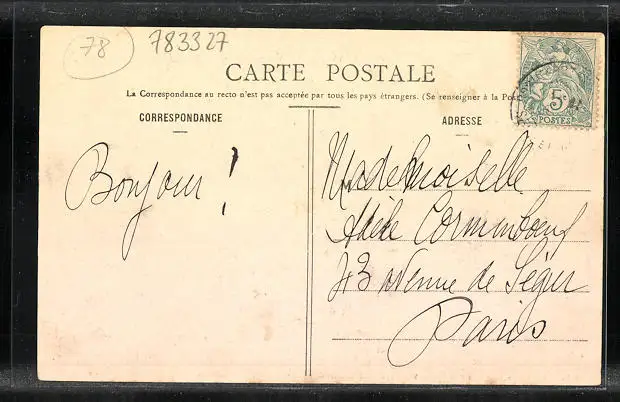 78
783327
CARTE POSTALE
La Correspondance au recto n'est pas acceptée par tous les pays étrangers. (Se renseigner à la Post
CORRESPONDANCE
ADRESSE
5c
POSTES
Bonjour !
Mademoiselle
Adèle Cormenboeuf
43 avenue de Ségur
Paris